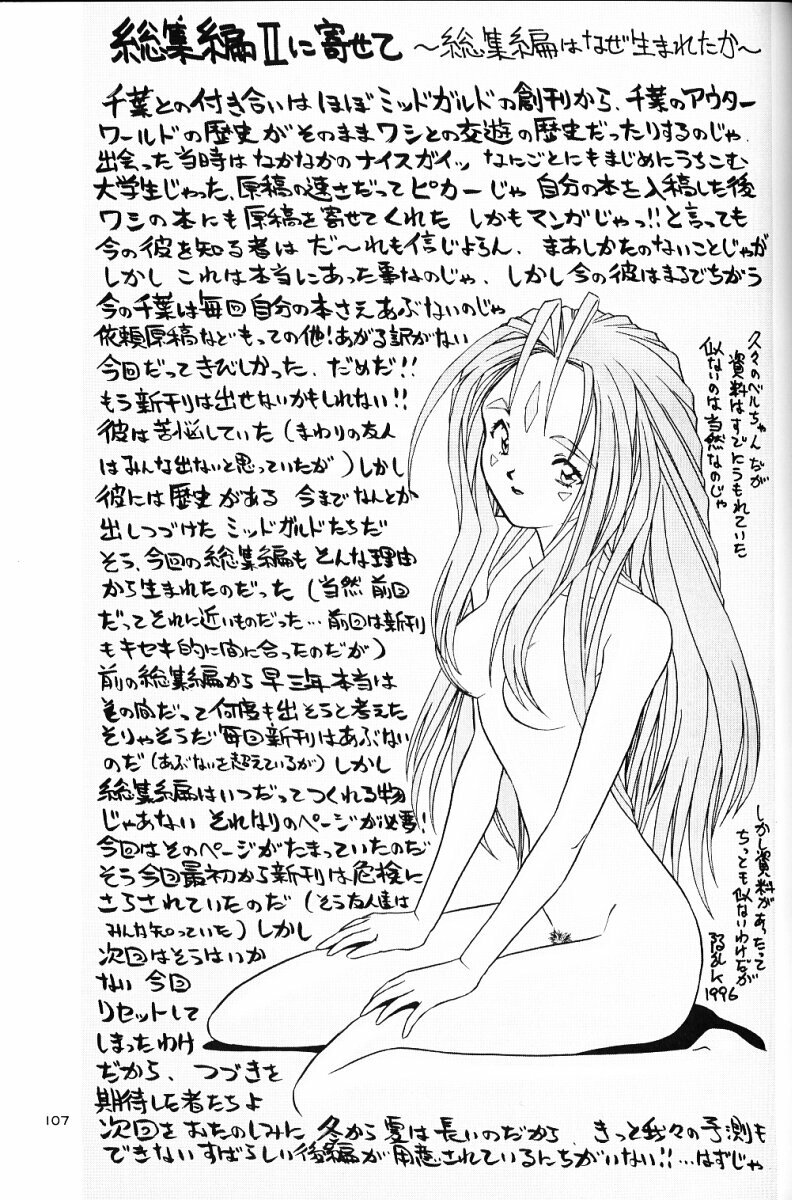 総集編Ⅱに寄せて ～総集編はなぜ生まれたか～
千葉との付き合いはほぼミッドガルドの創刊から、千葉のアウター
ワールドの歴史がそのままワシとの交遊の歴史だったりするのじゃ.
出会った当時はなかなかのナイスガイッ なにごとにもまじめにうちこむ
大学生じゃった、原稿の速さだってピカ一じゃ 自分の本を入稿した後
ワシの本にも原稿を寄せてくれた しかもマンガじゃっ!!と言っても
今の彼を知る者は だ〜れも信じよろん、まあしかたのないことじゃが
しかし これは本当にあった事なのじゃ、しかし今の彼はまるでちがう
今の千葉は毎回自分の本さえあぶないのじゃ
依頼原稿などもっての他!あがる訳がない
今回だってきびしかった、だめだ!!
もう新刊は出せないかもしれない!!
彼は苦悩していた(まわりの友人
はみんな出ないと思っていたが)しかし
彼には歴史がある 今までなんとか
出しつづけた ミッドガルドたちだ
そう、今回の総集編も そんな理由
から生まれたのだった(当然 前回
だってそれに近いものだった…前回は新刊
もキセキ的に間に合ったのだが)
前の総集編から早三年 本当は
その間だって何度も出そうと考えた
そりゃそうだ毎回新刊はあぶない
のだ(あぶないを超えているが)しかし
総集編はいつだってつくれる物
じゃあない それなりのページが必要!
今回はそのページがたまっていたのだ
そう今回最初から新刊は危検に
さらされていたのだ(そう友人達は
みんな知っていた)しかし
次回はそうはいか
ない 今回
リセットして
しまったわけ
だから、つづきを
期待した者たちよ
次回をおたのしみに 冬から夏は長いのだから、きっと我々の予測も
できないすばらしい後編が用意されているにちがいない!!…はずじゃ
久々のベルちゃんだが
資料はすでにうもれていた
似ないのは当然なのじゃ
しかし資料があったって
ちっとも似ないわけだが
1996
107